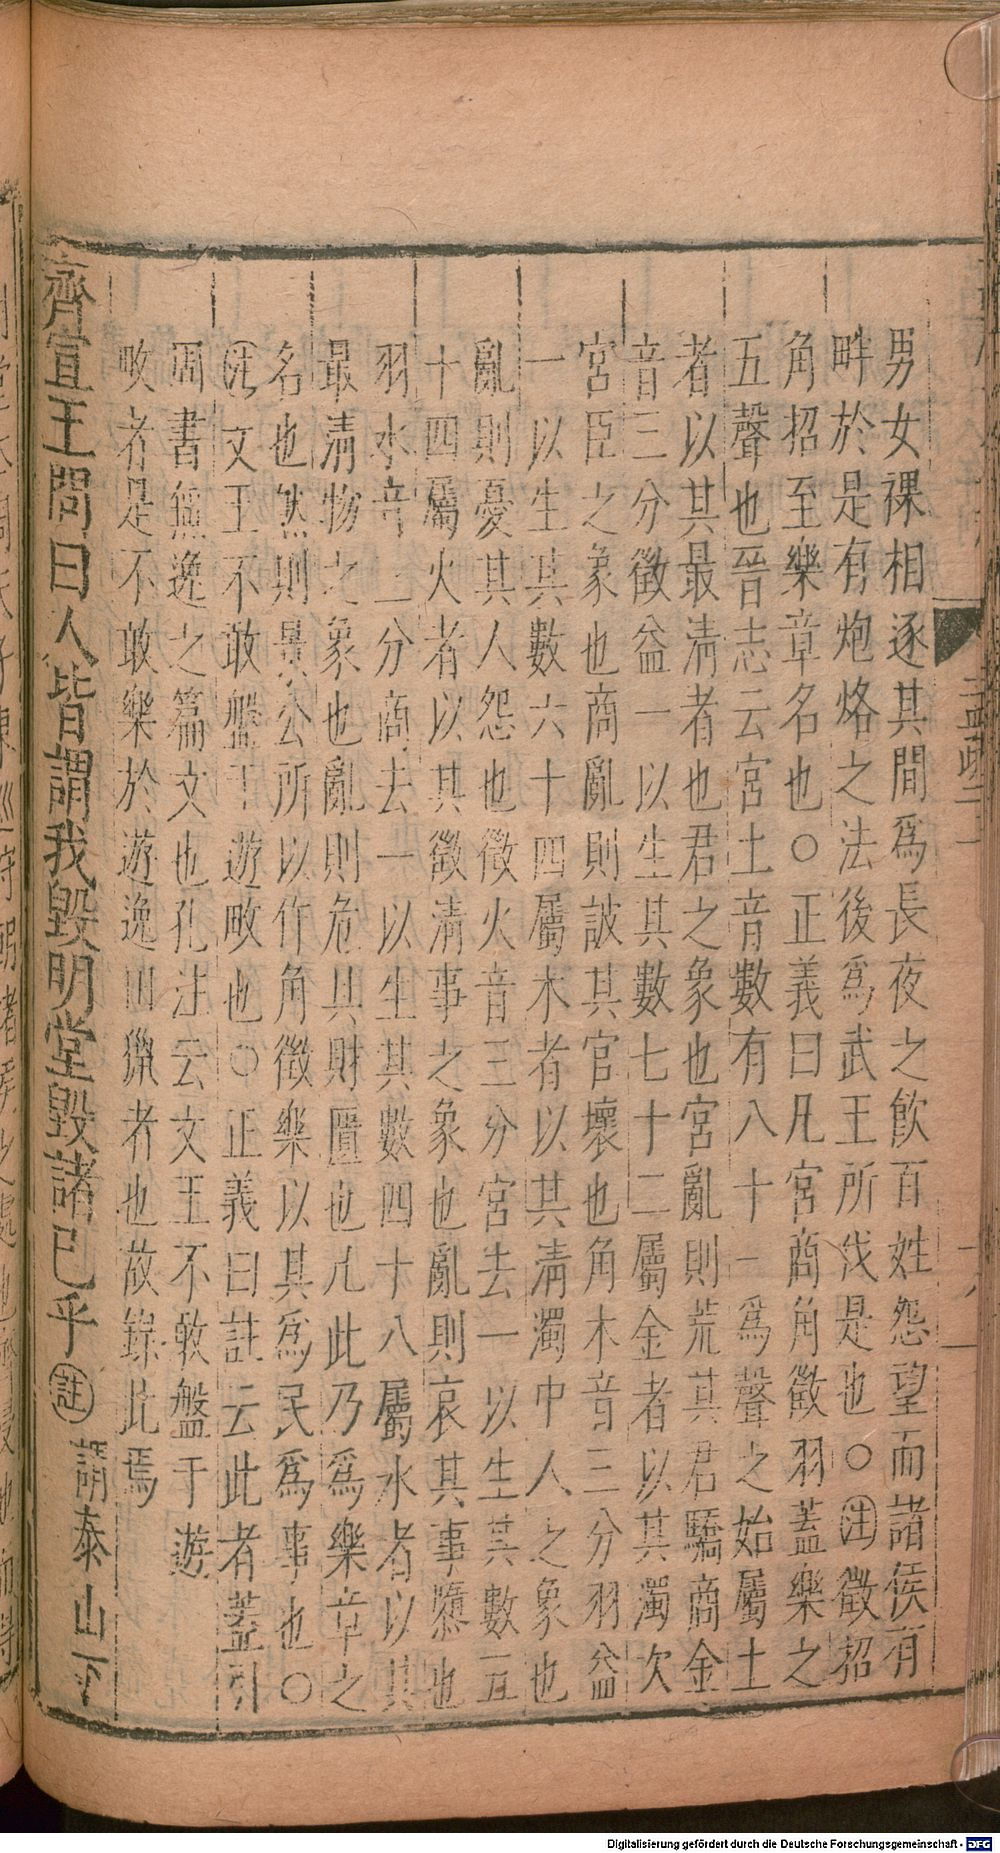 男女裸相逐其間爲長夜之飲百姓怨望而諸侯有
畔於是有炮烙之法後爲武王所伐是也○注徵招
角招至樂章名也○正義曰凡宮商角徵羽蓋樂之
五聲也晉志云宮土音數有八十一爲聲之始屬土
者以其最濁者也君之象也宮亂則荒其君驕商金
音三分徵益一以生其數七十二屬金者以其濁次
宮臣之象也商亂則詖其官壞也角木音三分羽益
一以生其數六十四屬木者以其清濁中人之象也
亂則憂其人怨也徵火音三分宮去一以生其數五
十四屬火者以其徵清事之象也亂則哀其事隳也
羽水音三分商去一以生其數四十八屬水者以其
最清物之象也亂則危其財匱也凡此乃爲樂章之
名也然則景公所以作角徵樂以其爲民爲事也○
注文王不敢盤于遊畋也○正義曰註云此者蓋引
周書無逸之篇文也孔注云文王不敢盤于遊
畋者是不敢樂於遊逸田獵者也故錄此焉
齊宣王問曰人皆謂我毀明堂毀諸已乎註謂泰山下
Digitalisierung gefördert durch die Deutsche Forschungsgemeinschaft - DFG